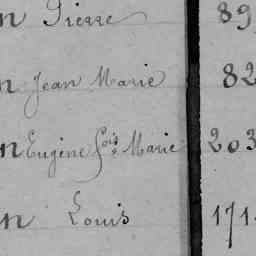 n Pierre 89
n Jean Marie 82
n Eugène fois Marie 203
n Louis 171